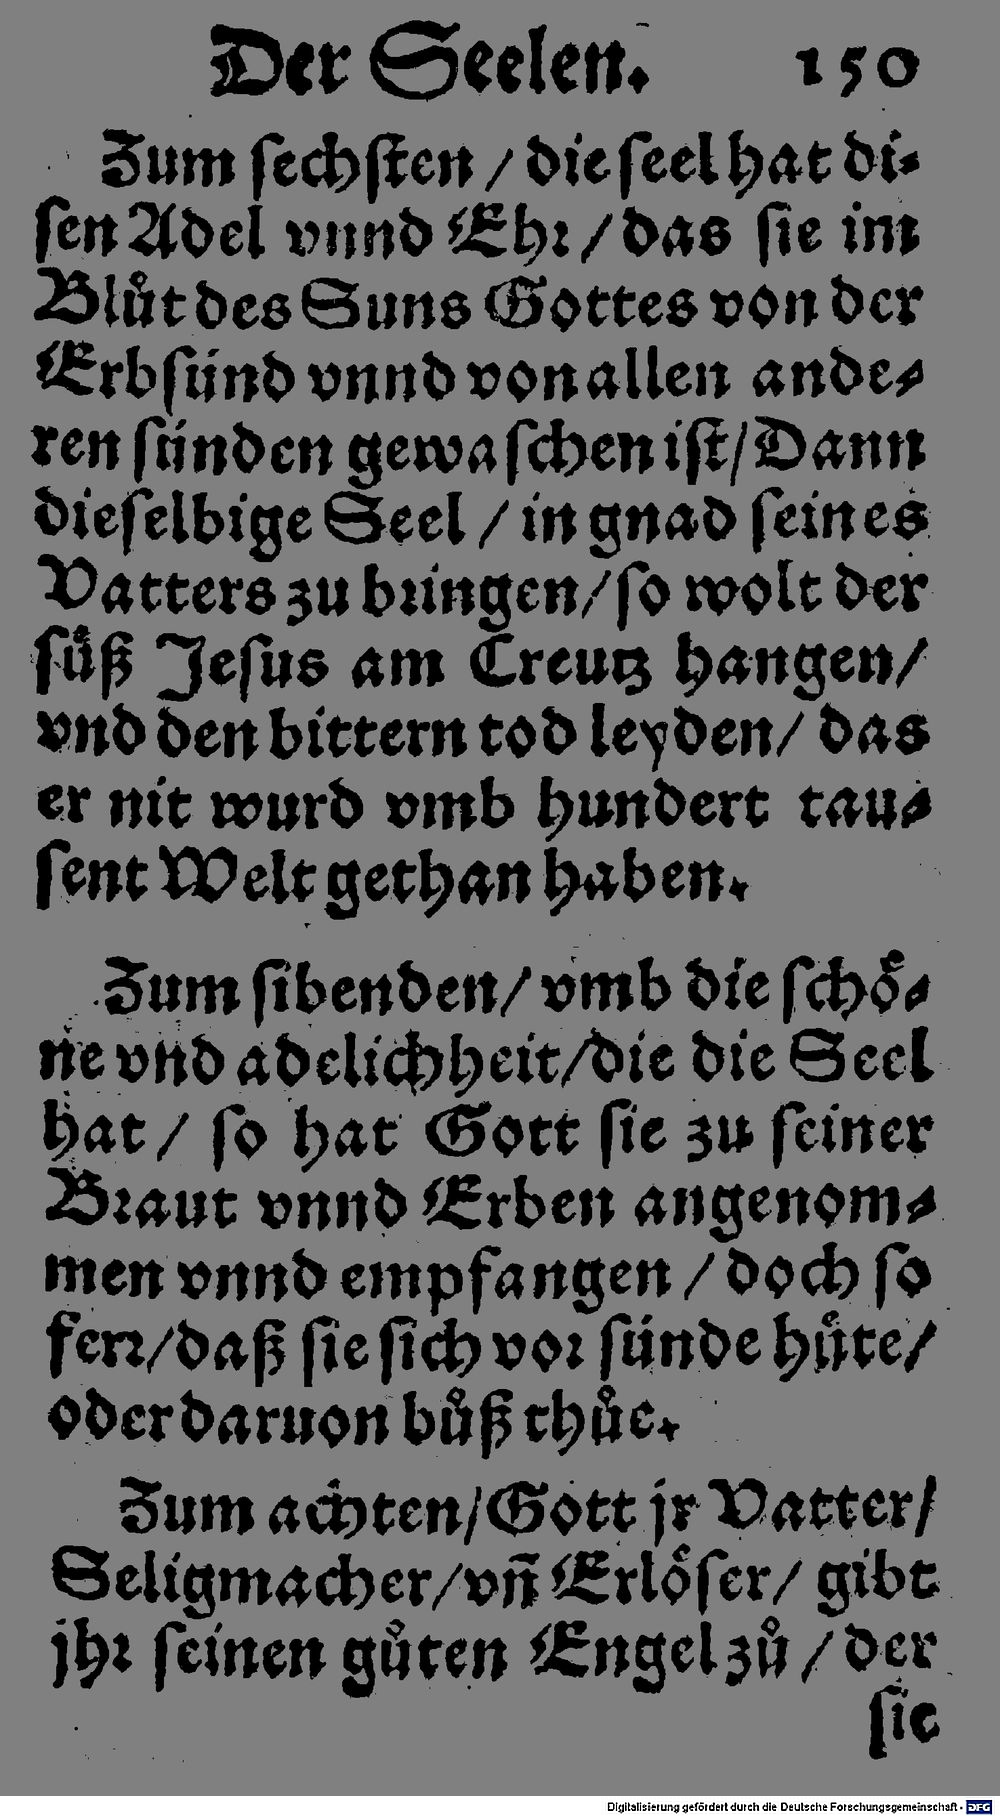 Der Seelen. 150
Zum ſechſten / die ſeel hat di⸗
ſen Adel vnnd Ehr / das ſie im
Blůt des Suns Gottes von der
Erbſünd vnnd von allen ande⸗
ren ſünden gewaſchen iſt / Dann
dieſelbige Seel / in gnad ſeines
Vatters zu bringen / ſo wolt der
ſuͤß Jeſus am Creutz hangen /
vnd den bittern tod leyden / das
er nit wurd vmb hundert tau⸗
ſent Welt gethan haben.
Zum ſibenden / vmb die ſchoͤ⸗
ne vnd adelichheit / die die Seel
hat / ſo hat Gott ſie zu ſeiner
Braut vnnd Erben angenom⸗
men vnnd empfangen / doch ſo
ferr / daß ſie ſich vor ſünde huͤte /
oder daruon bůß thůe.
Zum achten / Gott jr Vatter /
Seligmacher / vñ Erloͤſer / gibt
jhr ſeinen gůten Engel zů / der
ſie
Digitalisierung gefördert durch die Deutsche Forschungsgemeinschaft - DFG